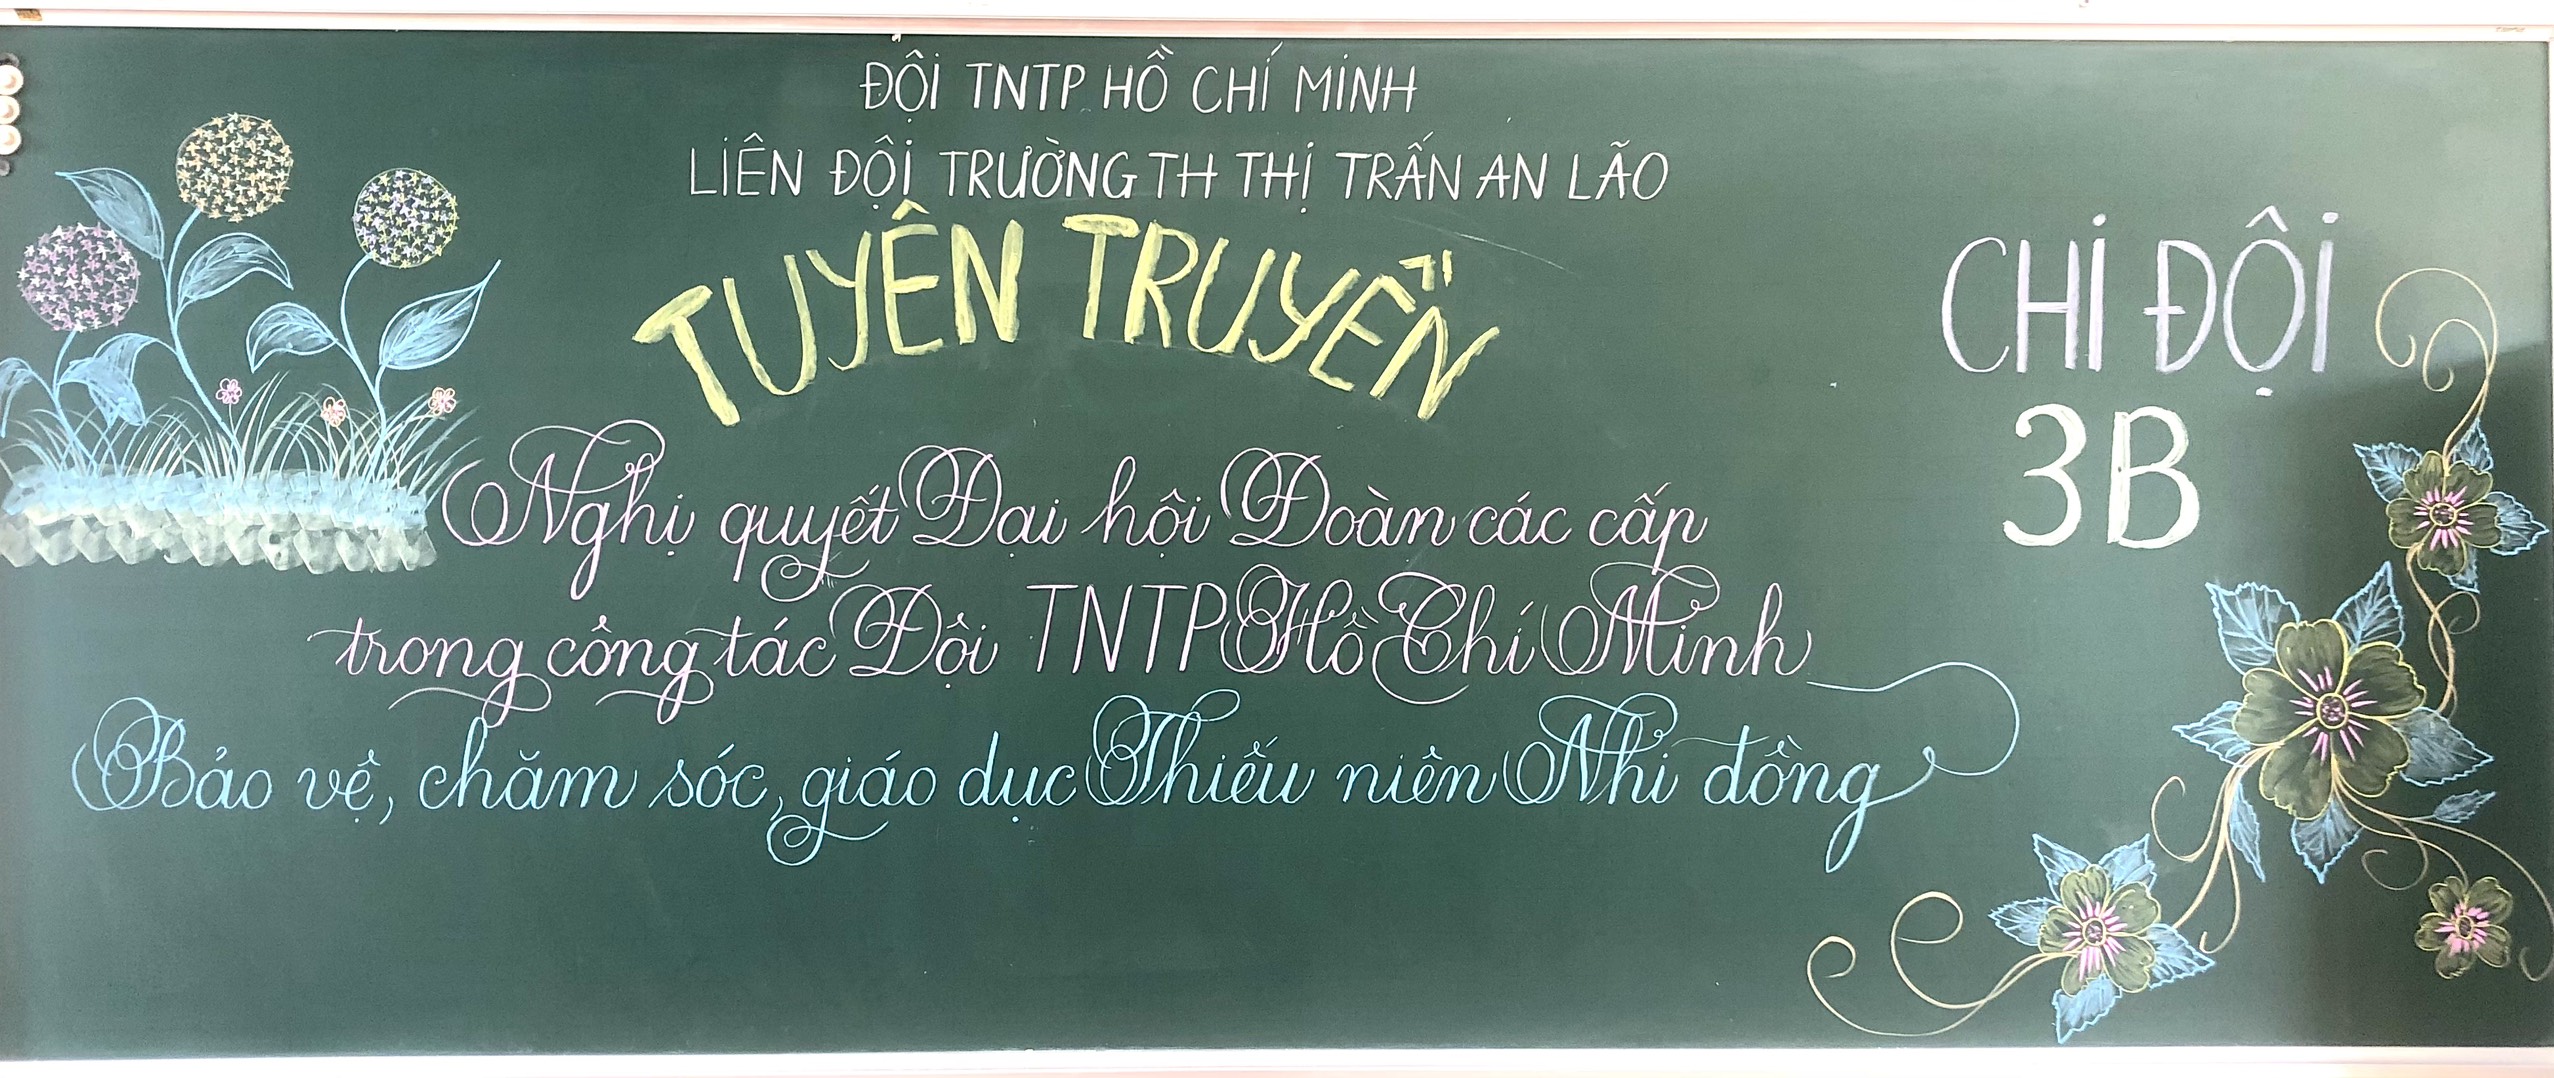 ĐỘI TNTP HỒ CHÍ MINH
LIÊN ĐỘI TRƯỜNG TH THỊ TRẤN AN LÃO
TUYÊN TRUYỀN
Nghị quyết Đại hội Đoàn các cấp
trong công tác Đội TNTP Hồ Chí Minh
Bảo vệ, chăm sóc, giáo dục Thiếu niên Nhi đồng
CHI ĐỘI
3B